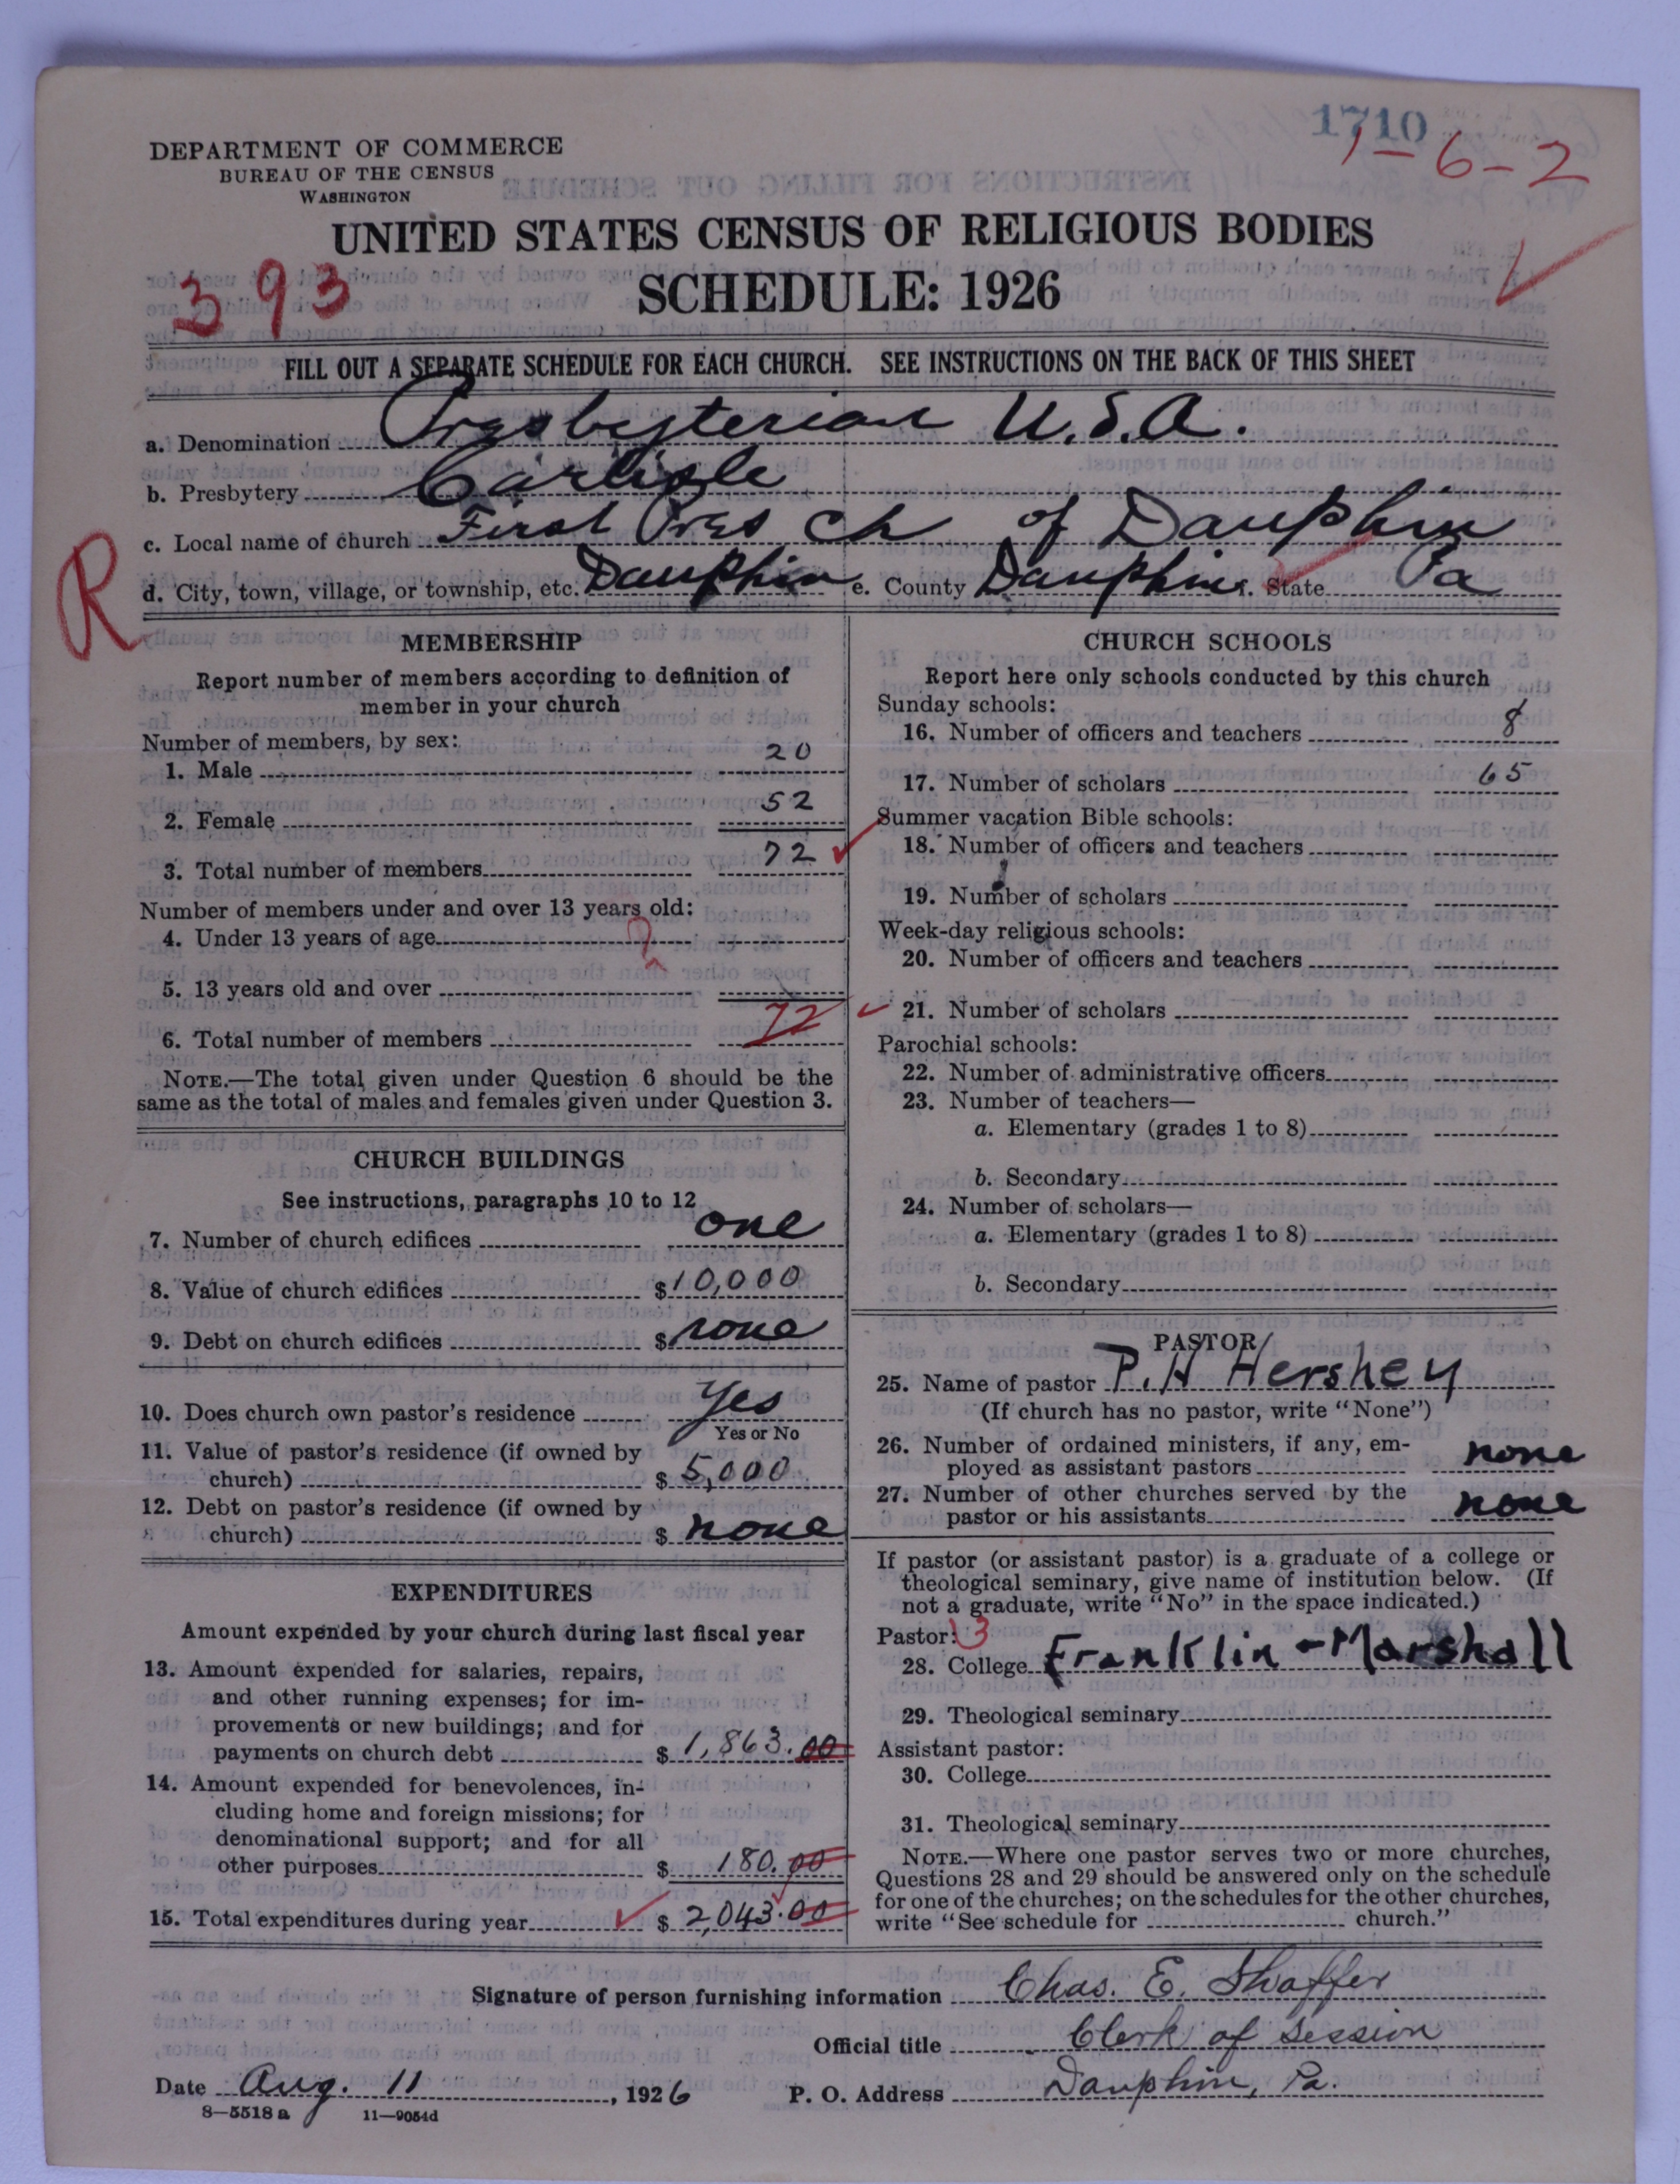 1710
1-6-2
DEPARTMENT OF COMMERCE
BUREAU OF THE CENSUS
WASHINGTON
UNITED STATES CENSUS OF RELIGIOUS BODIES
SCHEDULE: 1926
393
FILL OUT A SEPARATE SCHEDULE FOR EACH CHURCH. SEE INSTRUCTIONS ON THE BACK OF THIS SHEET
a. Denomination Presbyterian U.S.A.
b. Presbytery Carlisle
c. Local name of church First Pres Ch of Dauphin
R
d. City, town, village, or township, etc. Dauphin e. County Dauphin f. State Pa
MEMBERSHIP
Report number of members according to definition of
member in your church
Number of members, by sex:
1. Male 20
2. Female 52
3. Total number of members 72
Number of members under and over 13 years old:
4. Under 13 years of age ?
5. 13 years old and over
6. Total number of members 72
NOTE.—The total given under Question 6 should be the
same as the total of males and females given under Question 3.
CHURCH BUILDINGS
See instructions, paragraphs 10 to 12
7. Number of church edifices one
8. Value of church edifices $10,000
9. Debt on church edifices $ none
10. Does church own pastor's residence Yes
Yes or No
11. Value of pastor's residence (if owned by
church) $ 5,000
12. Debt on pastor's residence (if owned by
church) $ none
EXPENDITURES
Amount expended by your church during last fiscal year
13. Amount expended for salaries, repairs,
and other running expenses; for im-
provements or new buildings; and for
payments on church debt $ 1,863.00
14. Amount expended for benevolences, in-
cluding home and foreign missions; for
denominational support; and for all
other purposes $ 180.00
15. Total expenditures during year $ 2,043.00
CHURCH SCHOOLS
Report here only schools conducted by this church
Sunday schools:
16. Number of officers and teachers 8
17. Number of scholars 65
Summer vacation Bible schools:
18. Number of officers and teachers
19. Number of scholars
Week-day religious schools:
20. Number of officers and teachers
21. Number of scholars
Parochial schools:
22. Number of administrative officers
23. Number of teachers—
a. Elementary (grades 1 to 8)
b. Secondary
24. Number of scholars—
a. Elementary (grades 1 to 8)
b. Secondary
PASTOR
25. Name of pastor P. H Hershey
(If church has no pastor, write "None")
26. Number of ordained ministers, if any, em-
ployed as assistant pastors none
27. Number of other churches served by the
pastor or his assistants none
If pastor (or assistant pastor) is a graduate of a college or
theological seminary, give name of institution below. (If
not a graduate, write "No" in the space indicated.)
Pastor: 3
28. College Franklin - Marshall
29. Theological seminary
Assistant pastor:
30. College
31. Theological seminary
NOTE.—Where one pastor serves two or more churches,
Questions 28 and 29 should be answered only on the schedule
for one of the churches; on the schedules for the other churches,
write "See schedule for church."
Signature of person furnishing information Chas. E. Shaffer
Official title Clerk of Session
Date Aug. 11, 1926 P. O. Address Dauphin, Pa.
8—5518a 11—9054d